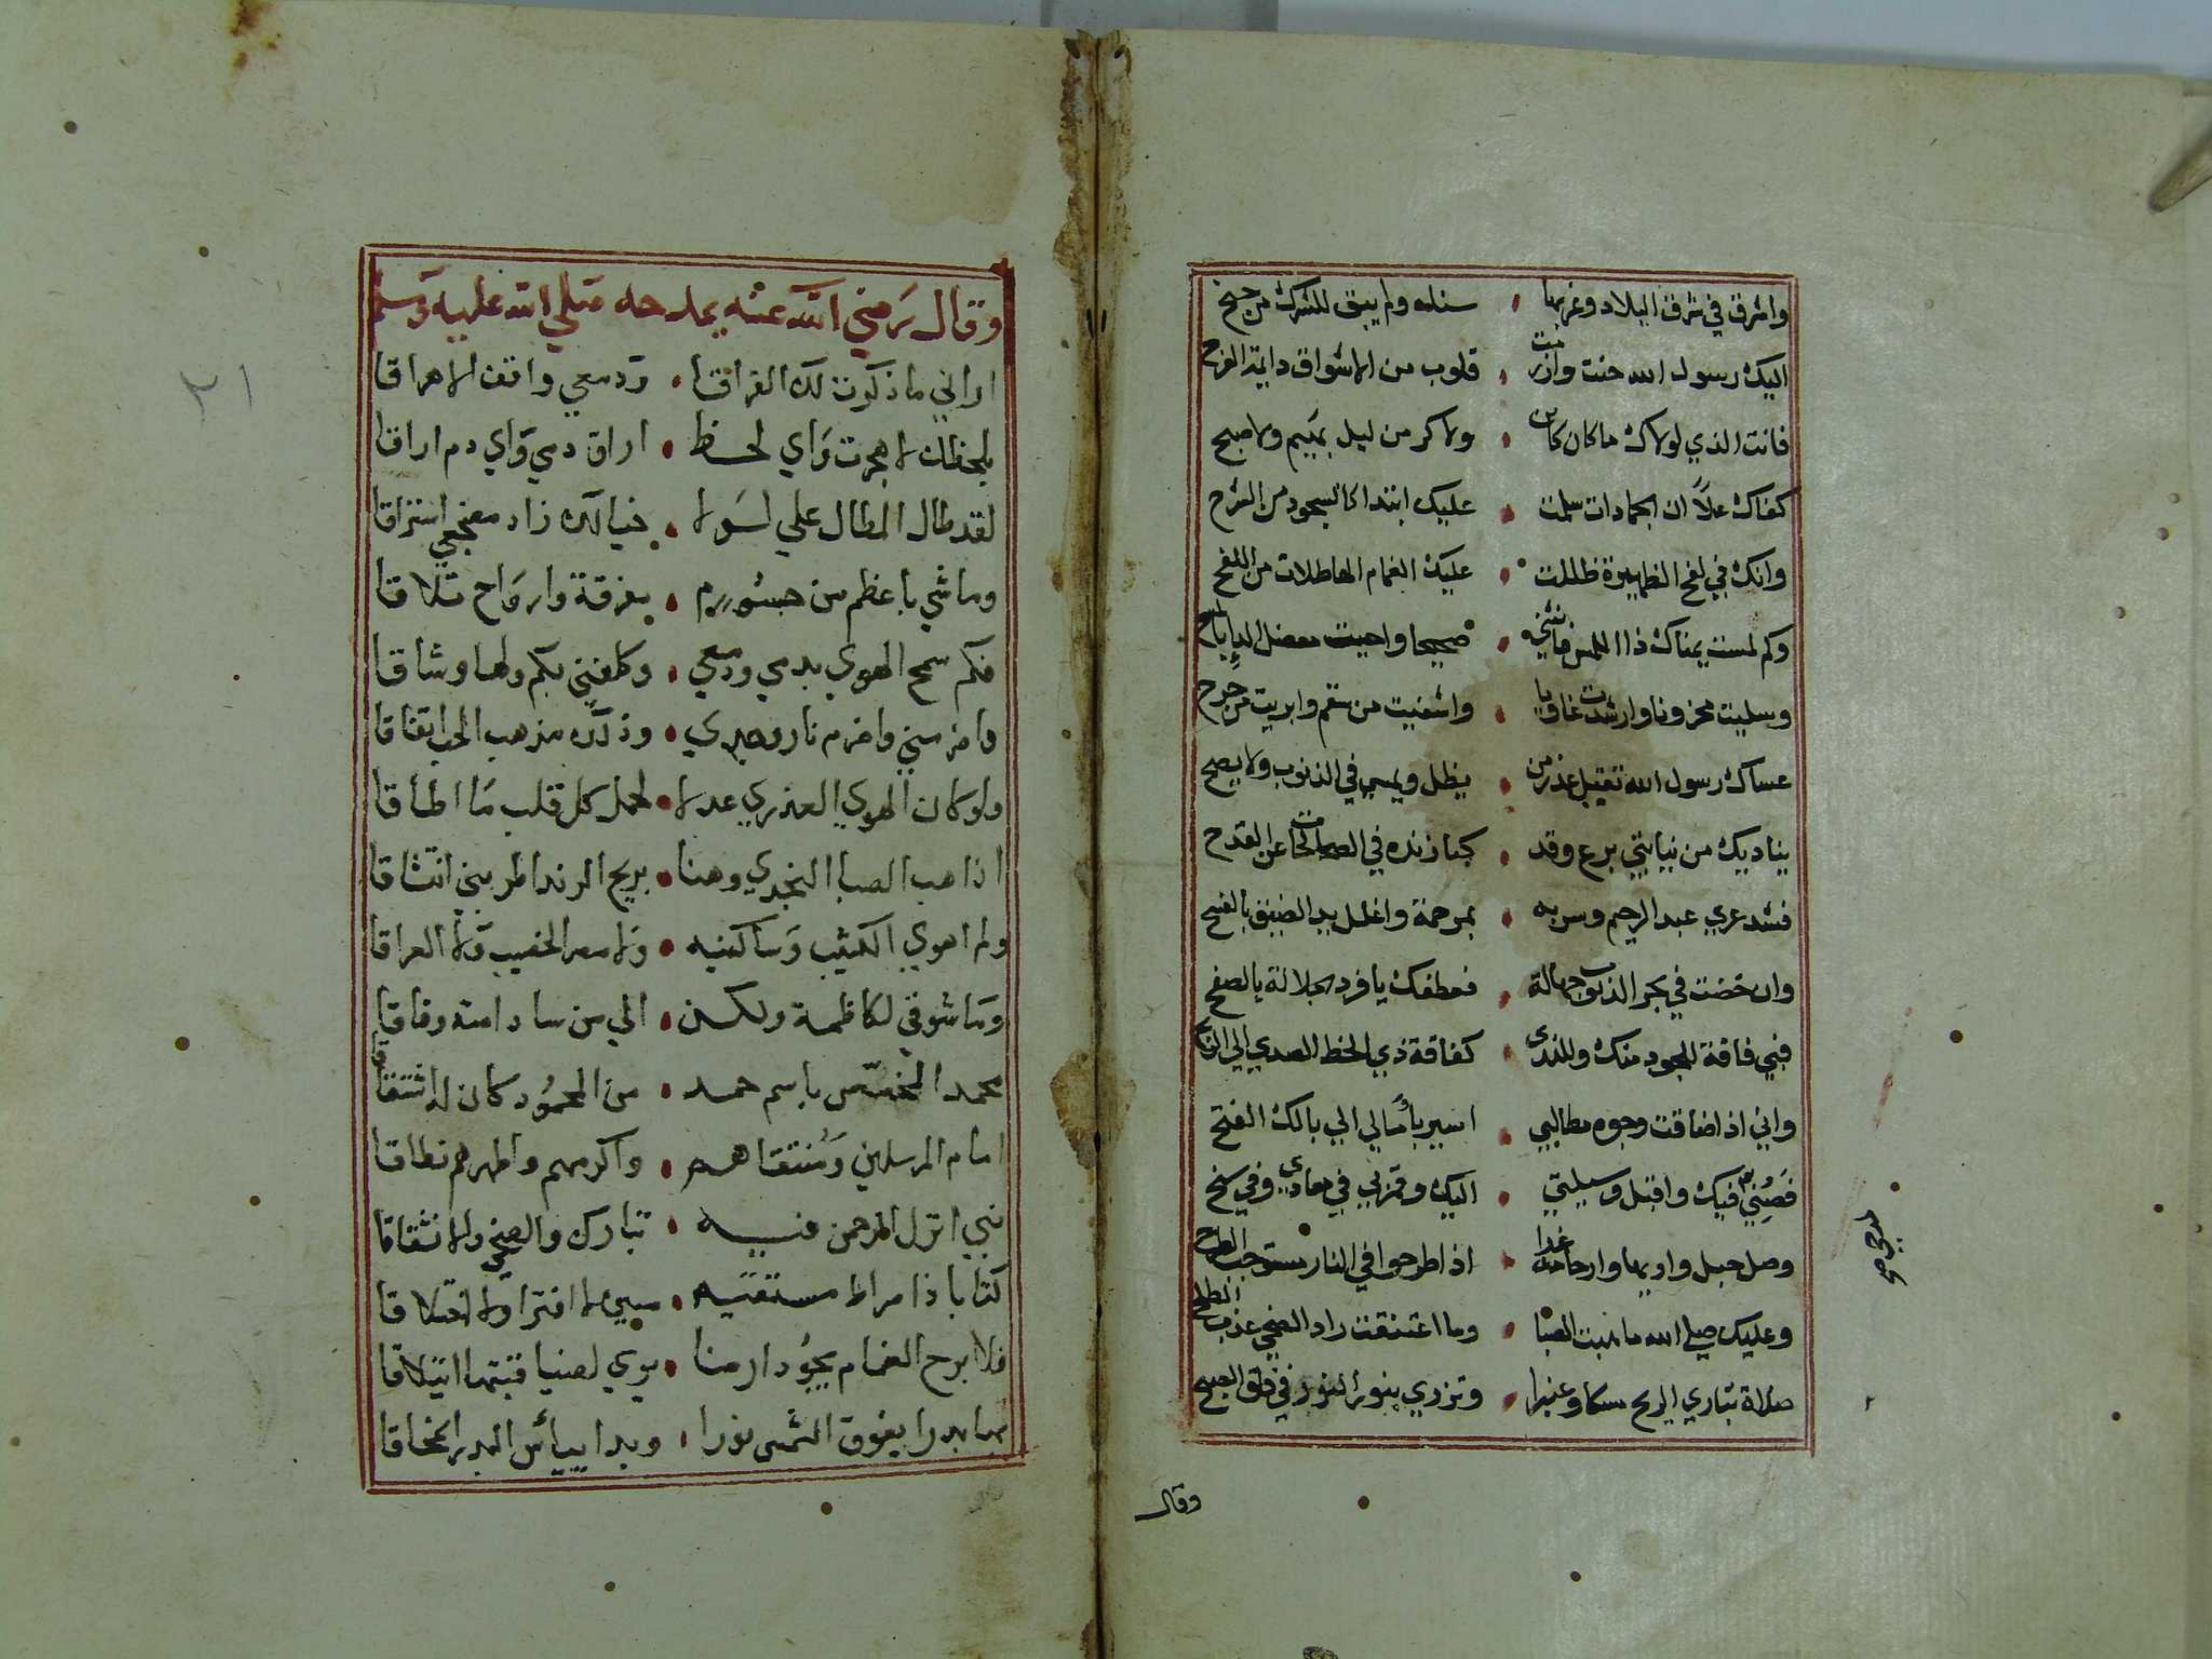 واشرق في شرق البلاد وغربها • سناه ولم يبق للشرك من جنح
اليك رسول الله حنت وازمت • قلوب من الاشواق دايمة القرح
فانت الذي لولاك ما كان كاين • ولا كر من ليل بهيم ولا صبح
كفاك علاً ان الجمادات سلمت • عليك ابتدا كالسجود من السرح
وانك في لفح الظهيرة ظللت • عليك الغمام الهاطلات من اللفح
وكم لمست يمناك ذا اللمس فانثني • صحيحا واحيت
وسليت محزونا وارشدت غاويا • واشفيت من سقم وابريت من جرح
عساك رسول الله تقبل عذر من • يظل ويمسي في الذنوب ولا يصح
يناديك من نيابتي برع وقد • كبا زنده في الصالحات عن القدح
فشد عري عبد الرحيم وسربه • بمرحمة واغلل يد الضيق بالفسح
وان خضت في بحر الذنوب جهالة • فعطفك يا فرد الجلالة بالصفح
فبي فاقة للجود منك وللندى • كفاقة ذي الخط الصدي الي
واني اذا ضاقت وجوه مطالبي • اسير بآمالي الي بالك الفتح
فصني فيك واقبل وسيلتي • اليك وقربي في معادي وفي
وصل حبل واديها وارحامه غدا • اذا طرحوا في النار مستوجب الطرح
وعليك صلي الله ما هبت الصبا • وما اعتنقت راد الضحي عذب الطلح
صلاة تباري الريح مسكا وعنبرا • وتزري بنور النور في فلق الصبح
وقال
وقال رضي الله عنه يمدحه صلي الله عليه وسلم
اراني ما ذكرت لك الفراقا • ودمعي واقف الا هراقا
بلحظك لا هجرت واي لحظ • اراق دمي واي دم اراقا
لقد طال المطال علي لولا • خيالك زار مضجعي استراقا
وما شي باعظم من جسوم • بفرقة وارواح تلاقا
فكم سمح الهوي بدمي ودمعي • وكلفني بكم ولها وشاقا
وامرضني واضرم نار صبري • وذلك مذهب الحب اتفاقا
ولو كان الهوي العذري عدلا • لحمل كل قلب ما اطاقا
اذا هب الصبا النجدي وهنا • بريح الرند اطربني انتشاقا
ولم اهوي الكثيب وساكنيه • ولا مصر الخصيب ولا العراقا
وما شوقي لكاظمة ولكن • الي من ساد امته وفاقا
محمد المختص باسم حمد • من المحمود كان له اشتقاقا
امام المرسلين ومنتقاهم • واكرمهم واطهرهم نطاقا
نبي انزل الرحمن فيه • تبارك والضحي والانشقاقا
كتابا ذا صراط مستقيم • مبين لا افترا ولا اختلاقا
فلا برح الغمام يجود ارضا • يوي لضيا قبتها ائتلاقا
بها بدرا يفوق الشمس نورا • وبدا بياس البدر المحاقا
٣١